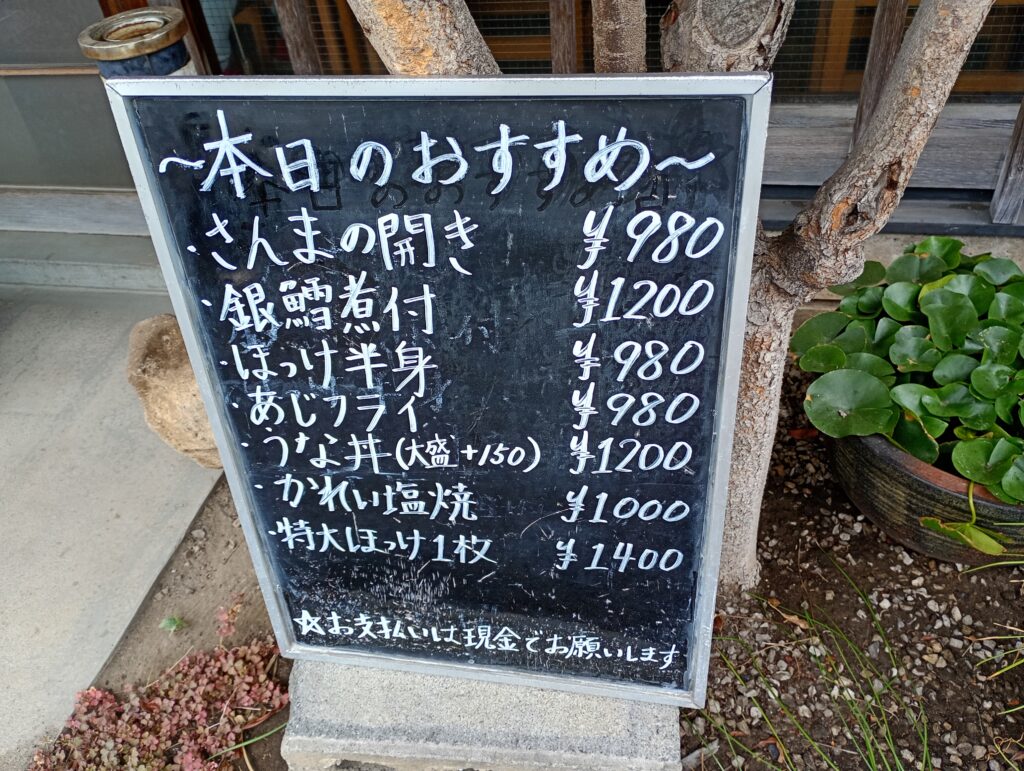 ~本日のおすすめ~
・さんまの開き ¥980
・銀鱈煮付 ¥1200
・ほっけ半身 ¥980
・あじフライ ¥980
・うな丼(大盛+150) ¥1200
・かれい塩焼 ¥1000
・特大ほっけ1枚 ¥1400
☆お支払いは現金でお願いします